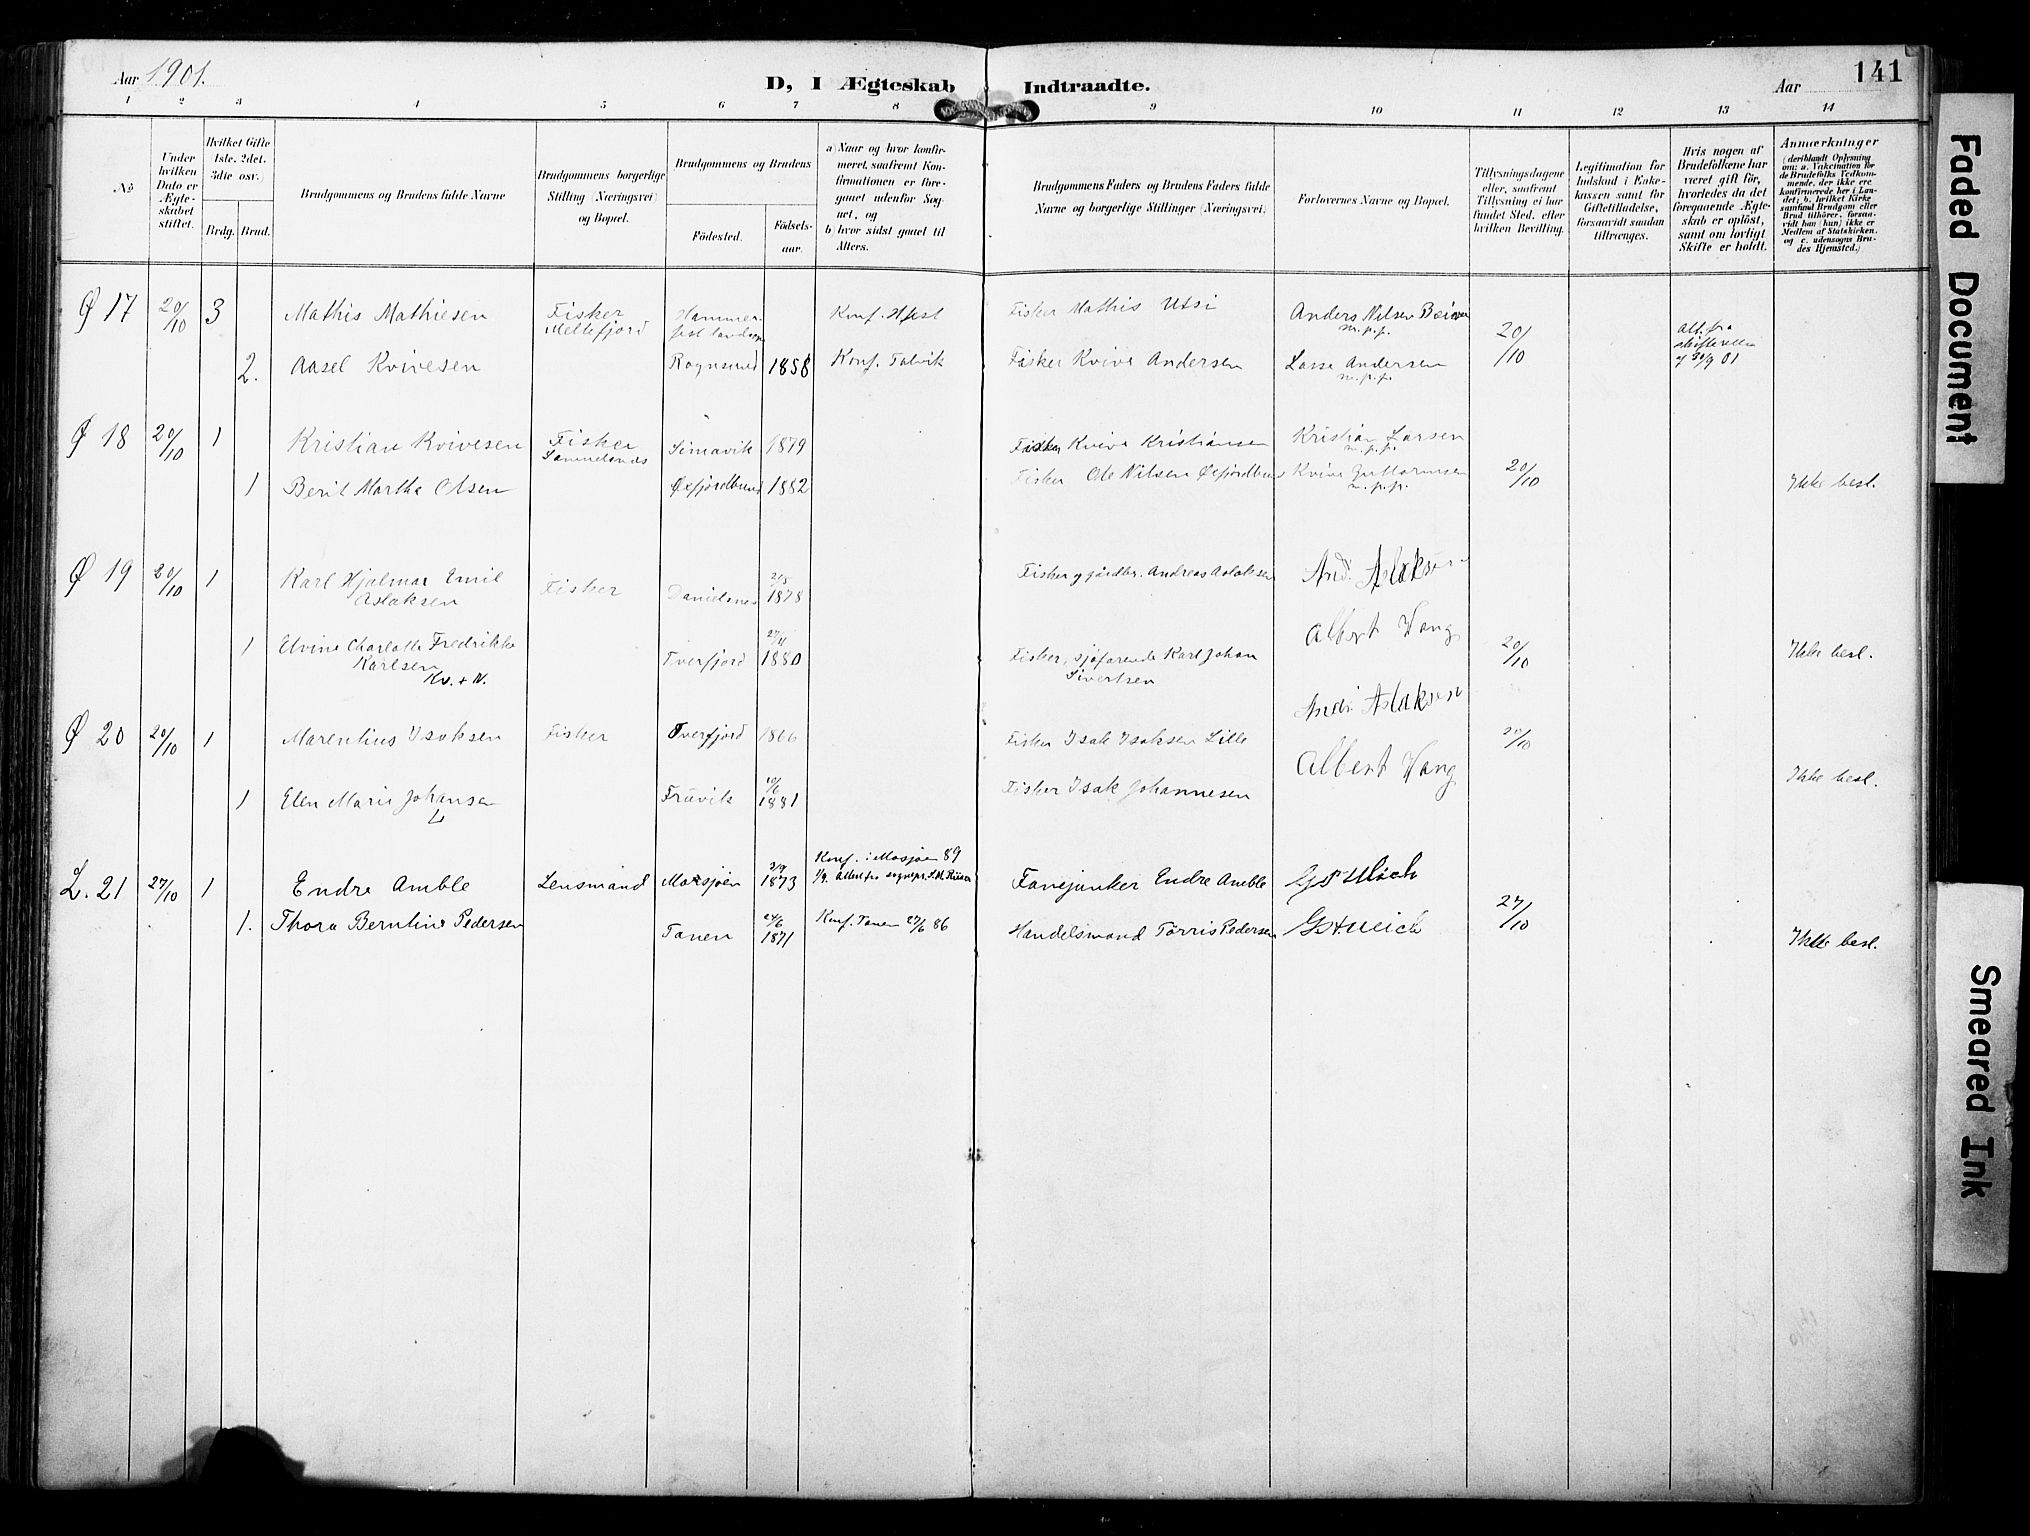 Aar 1901.
D, I Ægteskab Indtraadte.
Aar
141
1 2 3 4 5 6 7 8 9 10 11 12 13 14
No
Under hvilken Dato er Ægteskabet stiftet.
Hvilket Gifte 1ste, 2det, 3dte osv.
Brdg. Brud.
Brudgommens og Brudens fulde Navne
Brudgommens borgerlige Stilling (Næringsvei) og Bopæl.
Brudgommens og Brudens
Fødested.
Fødselsaar.
a) Naar og hvor konfirmeret, saafremt Konfirmationen er foregaaet udenfor Sognet, og
b) hvor sidst gaaet til Alters.
Brudgommens Faders og Brudens Faders fulde Navne og borgerlige Stillinger (Næringsvei)
Forlovernes Navne og Bopæl.
Tillysningsdagene eller, saafremt Tillysning ei har fundet Sted, efter hvilken Bevilling.
Legitimation for Indskud i Enkekassen samt for Giftetilladelse, forsaavidt saadan tiltrænges.
Hvis nogen af Brudefolkene har været gift før, hvorledes da det foregaaende Ægteskab er opløst, samt om lovligt Skifte er holdt.
Anmærkninger
(deriblandt Oplysning om: a. Vakcination for de Brudefolks Vedkommende, der ikke ere konfirmerede her i Landet; b. hvilket Kirkesamfund Brudgom eller Brud tilhører, forsaavidt han (hun) ikke er Medlem af Statskirken, og c. udensogns Brudes Hjemsted.)
Ø 17 20/10 3 Mathis Mathiesen Fisker Meltefjord Hammerfest landsogn Konf. Hfest Fisker Mathis Utsi Anders Nilsen m.p.p. 20/10 Att. fra skifteretten
2. Aasel Kvivesen Rognsund 1858 Konf. Talvik Fisker Kvive Andersen Lasse Andersen m.p.p.
Ø 18 20/10 1 Kristian Kvivesen Fisker Simavik 1879 Fisker Kvive Kristiansen Kristian Larsen m.p.p.
1 Berit Martha Olsen Øxfjordbund 1882 Fisker Ole Nilsen Øxfjordbund Kvive m.p.p. 20/10 Ikke besl.
Ø 19 20/10 1 Karl Hjalmar Emil Aslaksen Fisker Danielsnes 1878 Fisker og gårdbr. Andreas Aslaksen And. Aslaksen
1 Elvine Charlotte Fredrikke Karlsen Kv. + N. Tverfjord 27/11 1880 Fisker, sjøfarende Karl Johan Sivertsen Albert Wang 20/10 Ikke besl.
Ø 20 20/10 1 Marentius Isaksen Fisker Tverfjord 1866 Fisker Isak Isaksen Lille Andr Aslaksen 20/10
1 Elen Marie Johansen Fruvik 10/6 1881 Fisker Isak Johannesen Albert Wang Ikke besl.
L. 21 27/10 1 Endre Amble Lensmand Mosjøen 3/9 1873 Konf. i Mosjøen 89 Fanejunker Endre Amble
1. Thora Berntine Pedersen Tanen 24/6 1871 Konf. Tanen 27/6 86 Handelsmand Tørris Pedersen 27/10 Ikke besl.
Faded Document
Smeared Ink